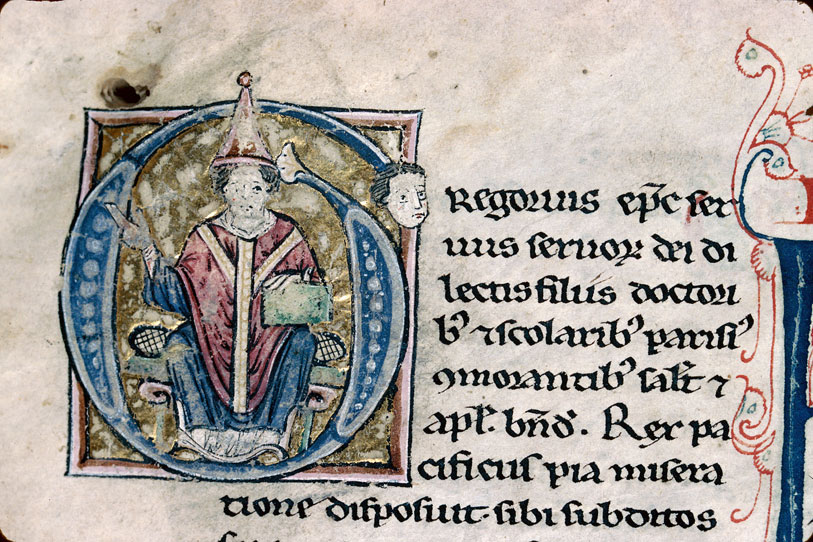 Regorius ep̄c ser
uus seruoꝝ dei di
lectis filiis doctori
bꝰ ⁊ scolaribꝰ parisiꝰ
ꝯmorantibꝰ sal̄t ⁊
apl̄. bn̄d̄. Rex pa
cificus pia misera
tione disposuit sibi subditos